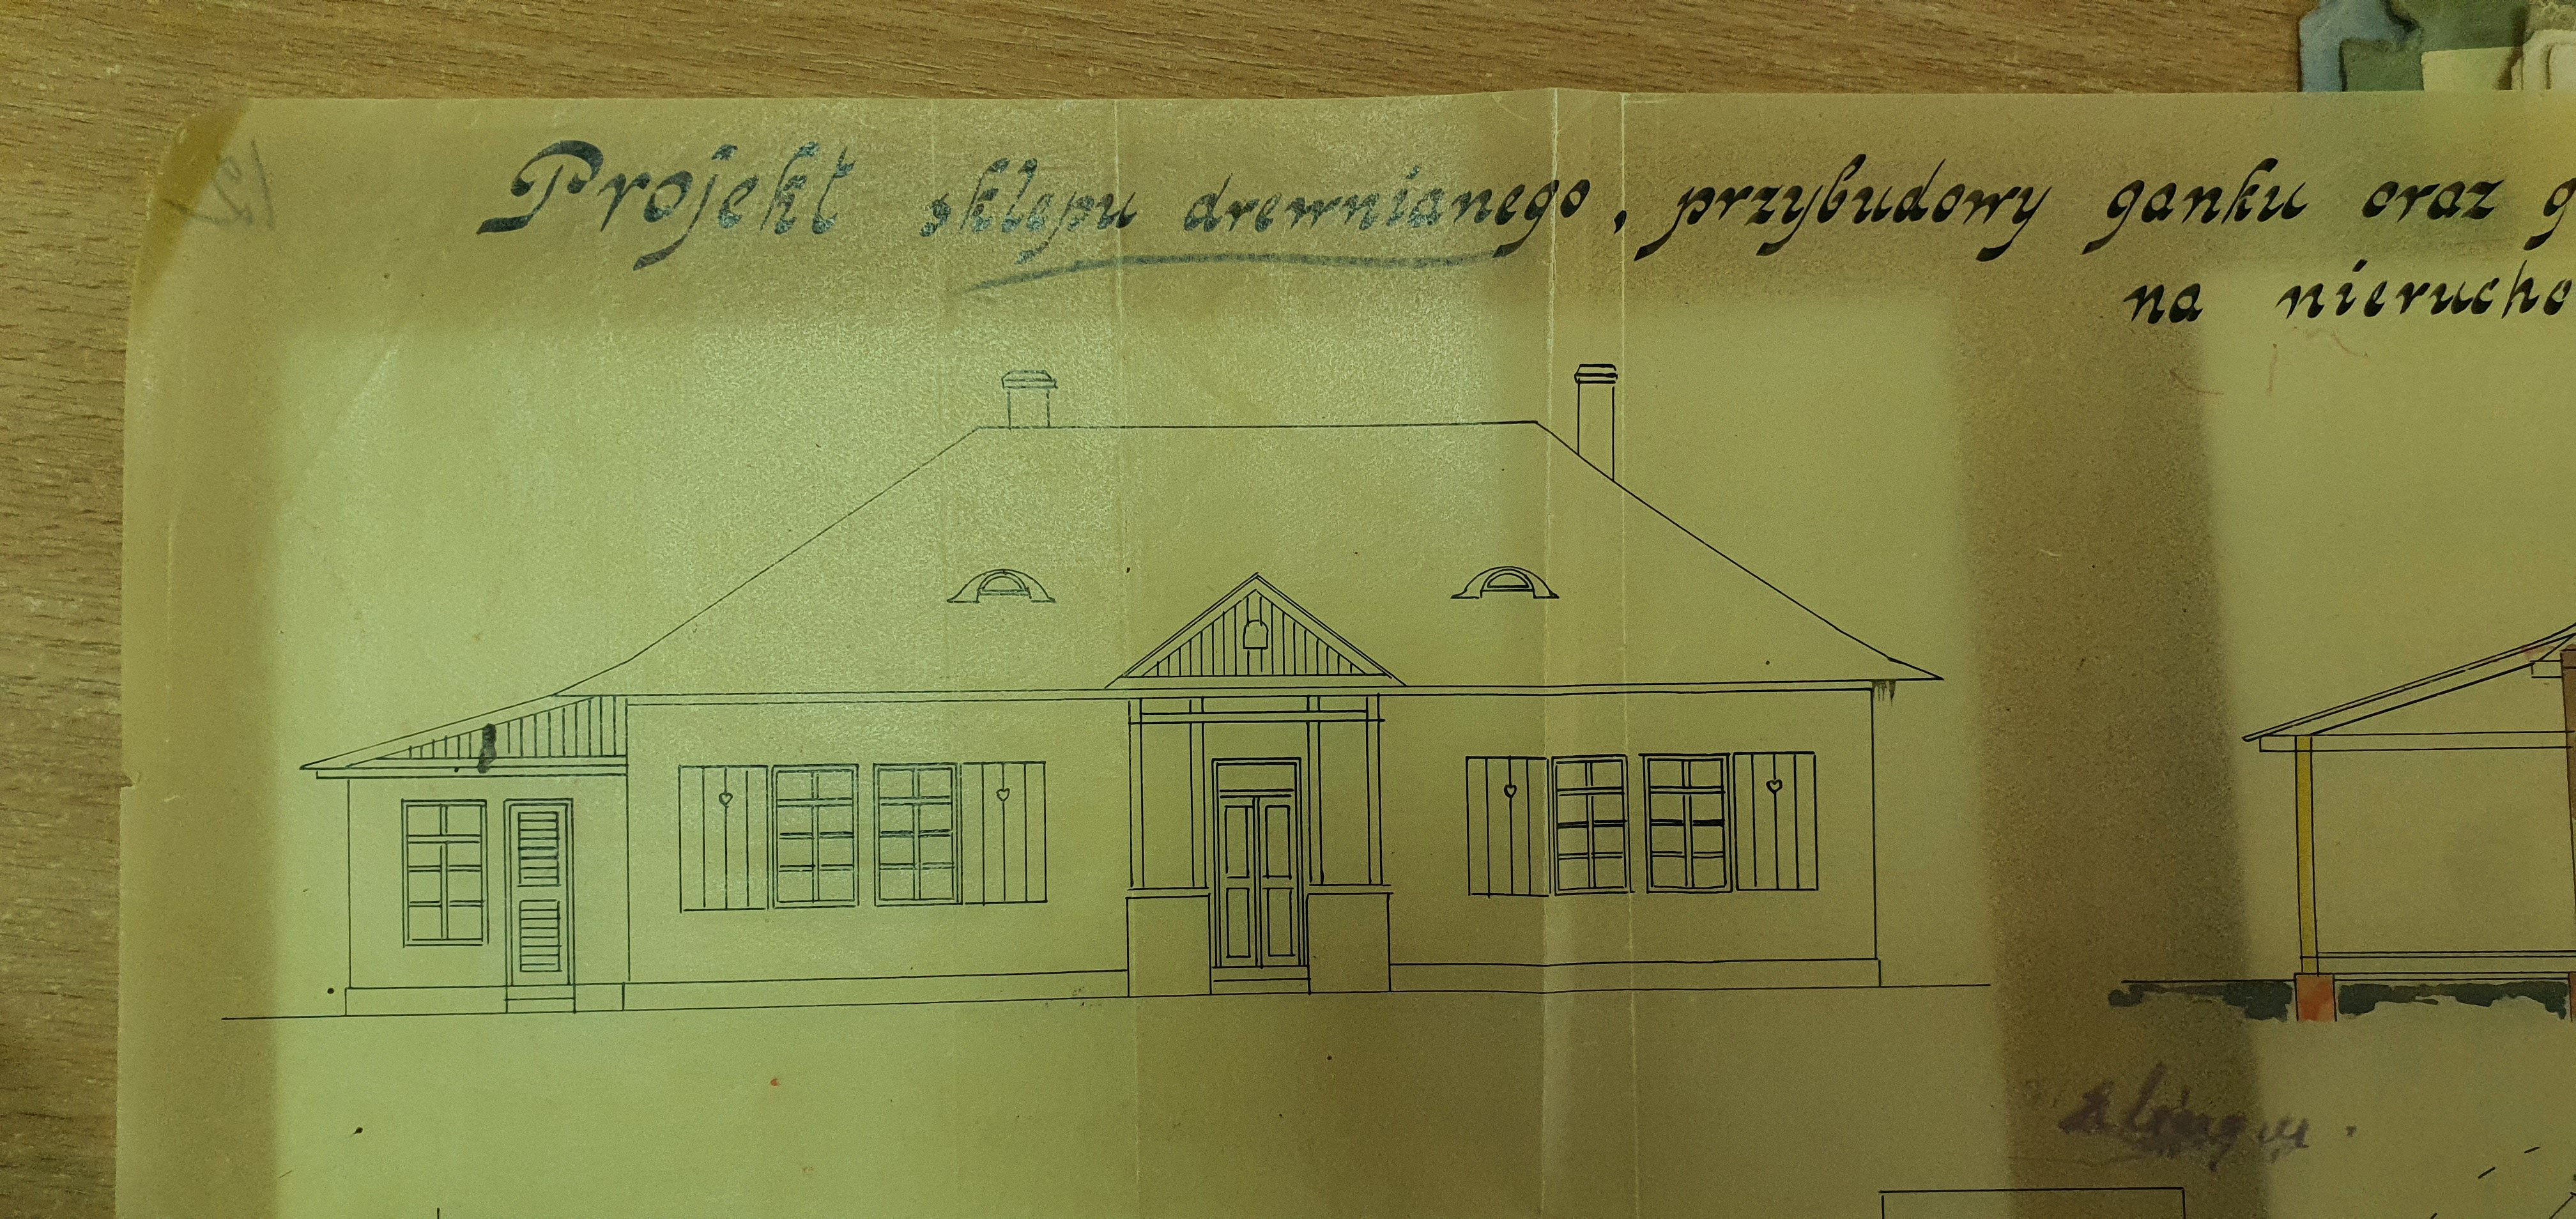 12
Projekt sklepu drewnianego, przybudowy ganku oraz g
na nierucho